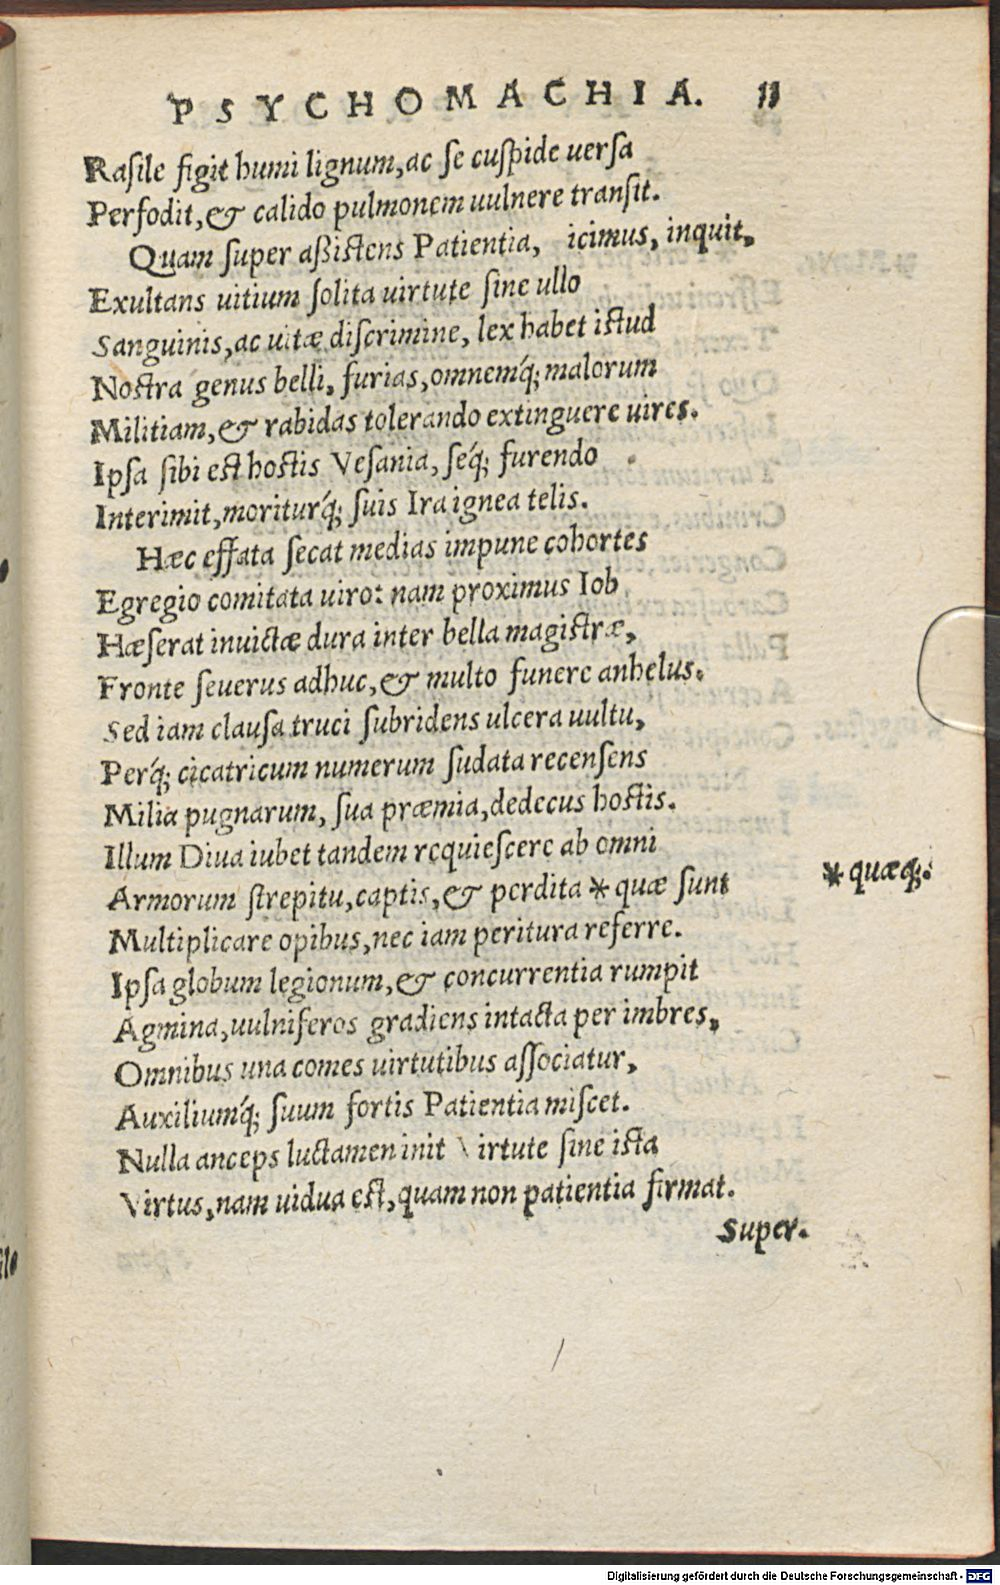 PSYCHOMACHIA. 11
Rasile figit humi lignum, ac se cuspide uersa
Perfodit, & calido pulmonem uulnere transit.
Quam super aßistens Patientia, icimus, inquit,
Exultans uitium solita uirtute sine ullo
Sanguinis, ac uitæ discrimine, lex habet istud
Nostra genus belli, furias, omnemq́; malorum
Militiam, & rabidas tolerando extinguere uires.
Ipsa sibi est hostis Vesania, seq́; furendo
Interimit, moriturq́; suis Ira ignea telis.
Hæc effata secat medias impune cohortes
Egregio comitata uiro: nam proximus Iob
Hæserat inuictæ dura inter bella magistræ,
Fronte seuerus adhuc, & multo funere anhelus.
Sed iam clausa truci subridens ulcera uultu,
Perq́; cicatricum numerum sudata recensens
Milia pugnarum, sua præmia, dedecus hostis.
Illum Diua iubet tandem requiescere ab omni
Armorum strepitu, captis, & perdita * quæ sunt
* quæq;.
Multiplicare opibus, nec iam peritura referre.
Ipsa globum legionum, & concurrentia rumpit
Agmina, uulniferos gradiens intacta per imbres,
Omnibus una comes uirtutibus associatur,
Auxiliumq́; suum fortis Patientia miscet.
Nulla anceps luctamen init Virtute sine ista
Virtus, nam uidua est, quam non patientia firmat.
Super.
Digitalisierung gefördert durch die Deutsche Forschungsgemeinschaft - DFG